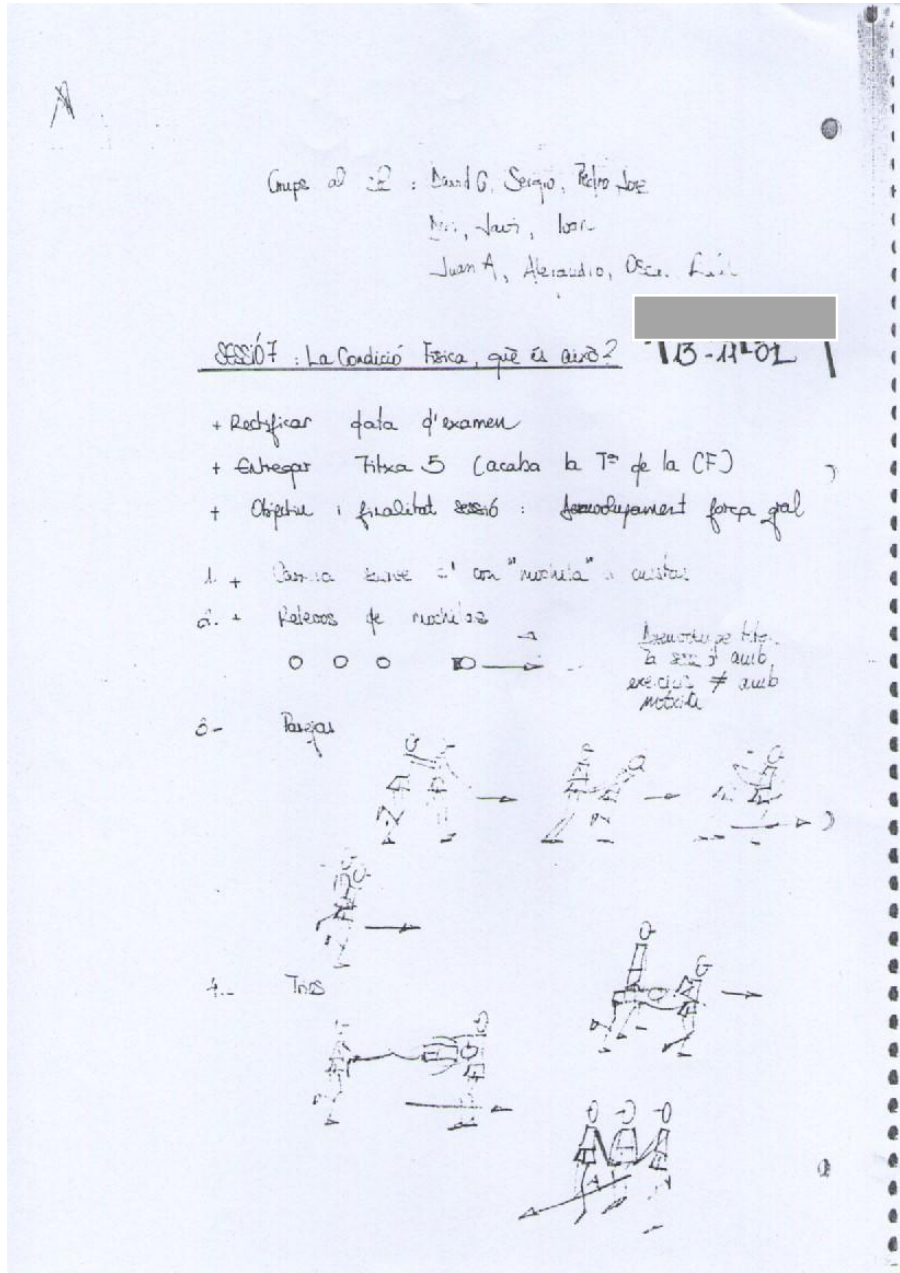 Grups al : David G, Sergio, Pedro Jose
Javi,
Juan A, Alejandro,
SESSIÓ 7 : La Condició Física, què és això? 13-11-02
+ Rectificar data d'examen
+ Entregar Fitxa 5 (acaba la Tª de la CF)
+ Objectiu i finalitat sessió : desenvolupament força gral
1. + suave con "mochila" a cuestas
2. + Relevos de mochilas
amb
exercicis ≠ amb
motxila
3- Parejas
4.- Tríos